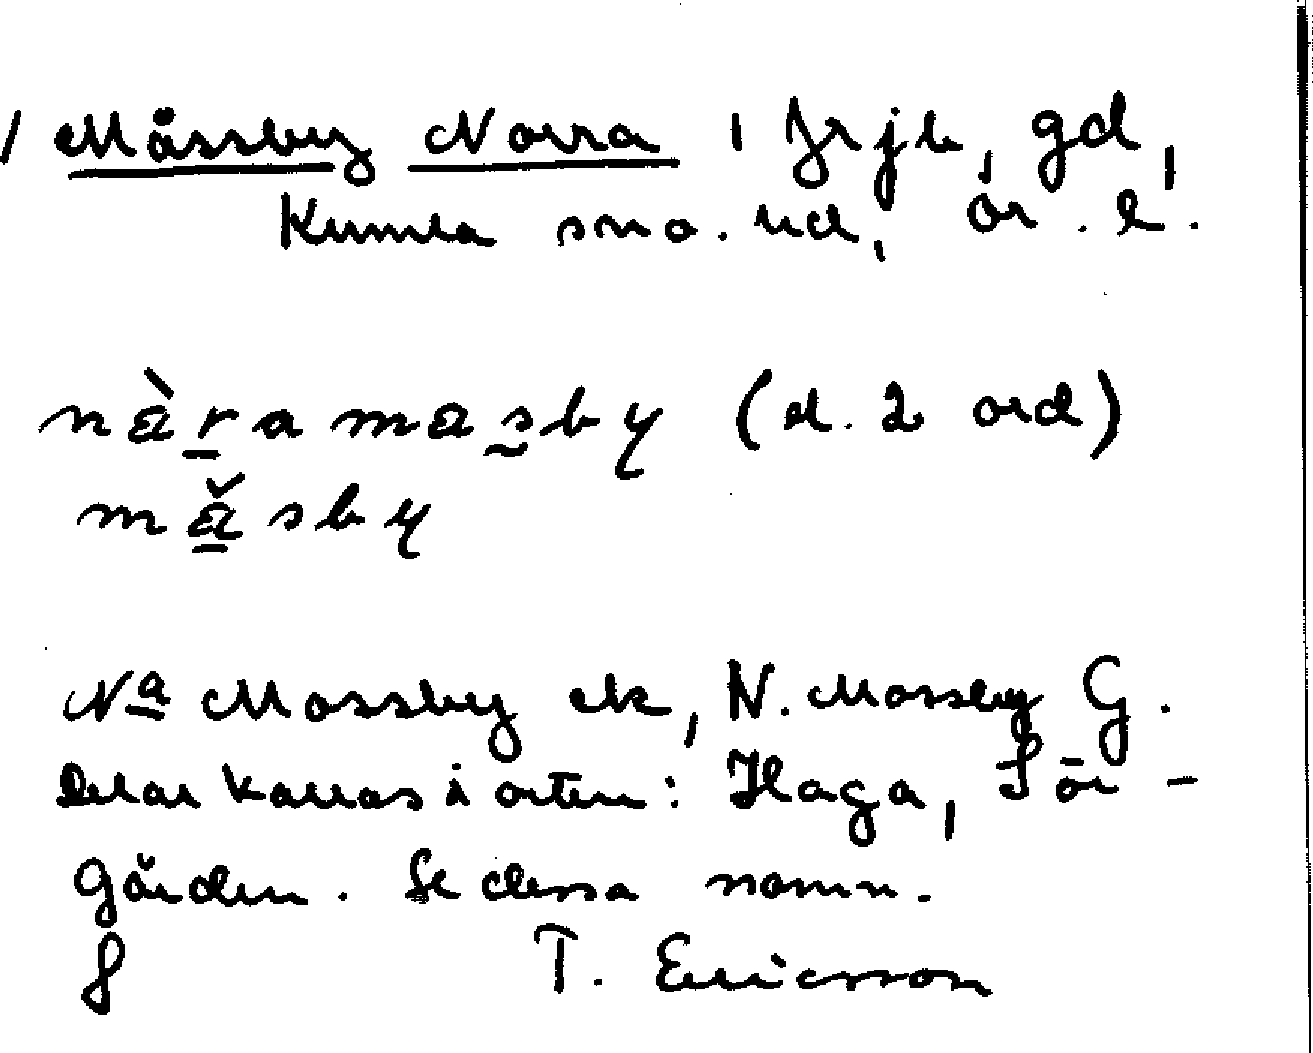 / Måssby Norra 1 frjk, gd,
Kumla sno. hd, Ör. l.
nàra masby (d. 2 ord)
măsby
Na Mossby ek, N. Mossby G.
Delar kallas i orten: Haga, Sör-
gården. Se dessa namn.
T. Ericsson